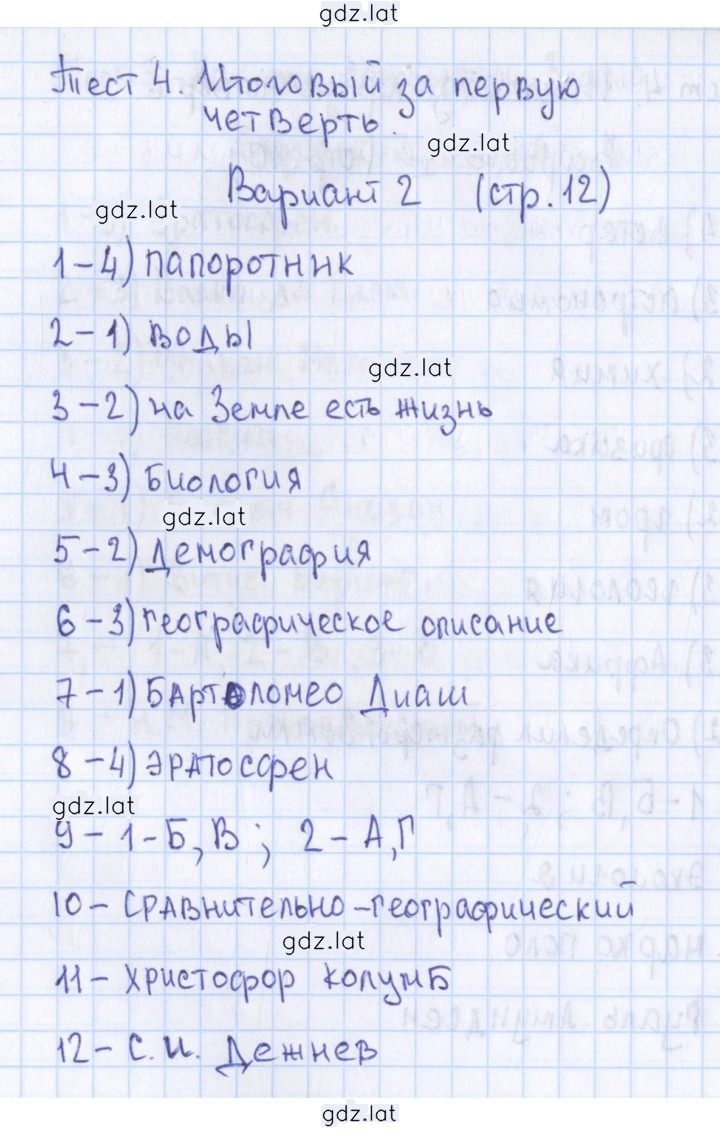 gdz.lat
Тест 4. Итоговый за первую
четверть.
gdz.lat
Вариант 2 (стр. 12)
gdz.lat
1-4) папоротник
2-1) воды
gdz.lat
3-2) на Земле есть жизнь
4-3) биология
gdz.lat
5-2) демография
6-3) географическое описание
7-1) Бартоломео Диаш
8-4) Эратосфен
gdz.lat
9-1-Б, В; 2-А, Г
10- сравнительно-географический
gdz.lat
11- Христофор Колумб
12- С.И. Дежнев
gdz.lat